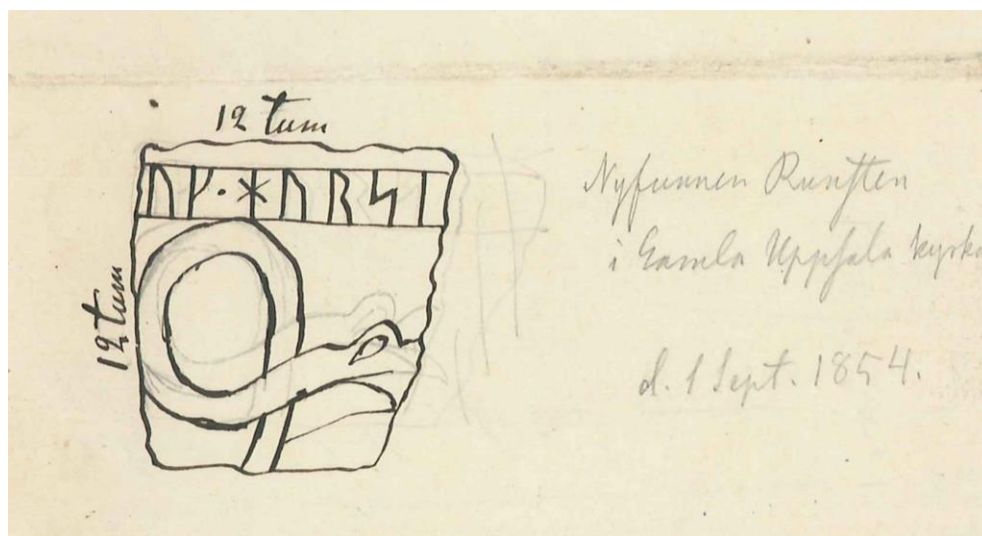 12 tum
ᚢᚴ·ᚼᚢᚱᛋᛁ
12 tum
Nyfunnen Runſten
i Gamla Uppſala kyrka
d. 1 Sept. 1854.